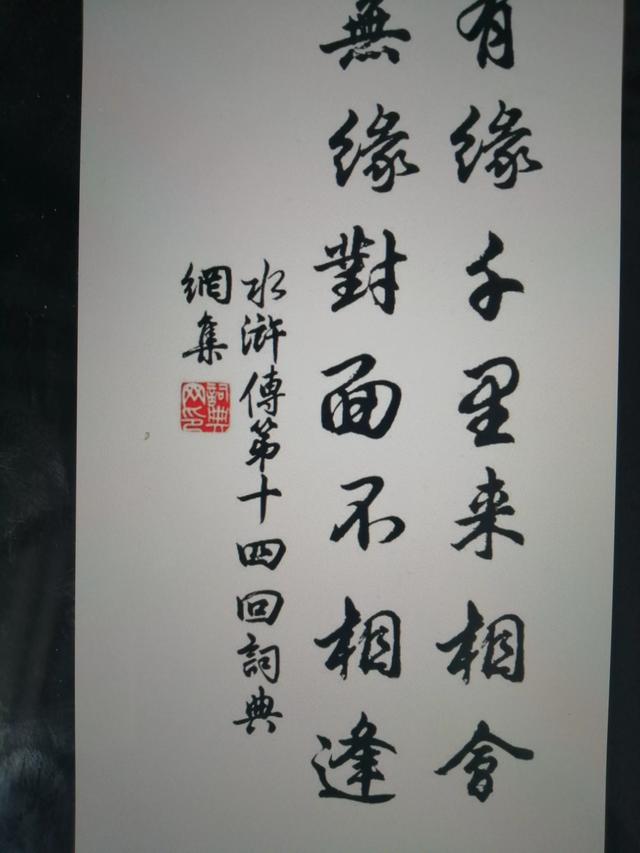 有緣千里来相會
無緣對面不相逢
水滸傳第十四回詞典
網集
詞典
网印